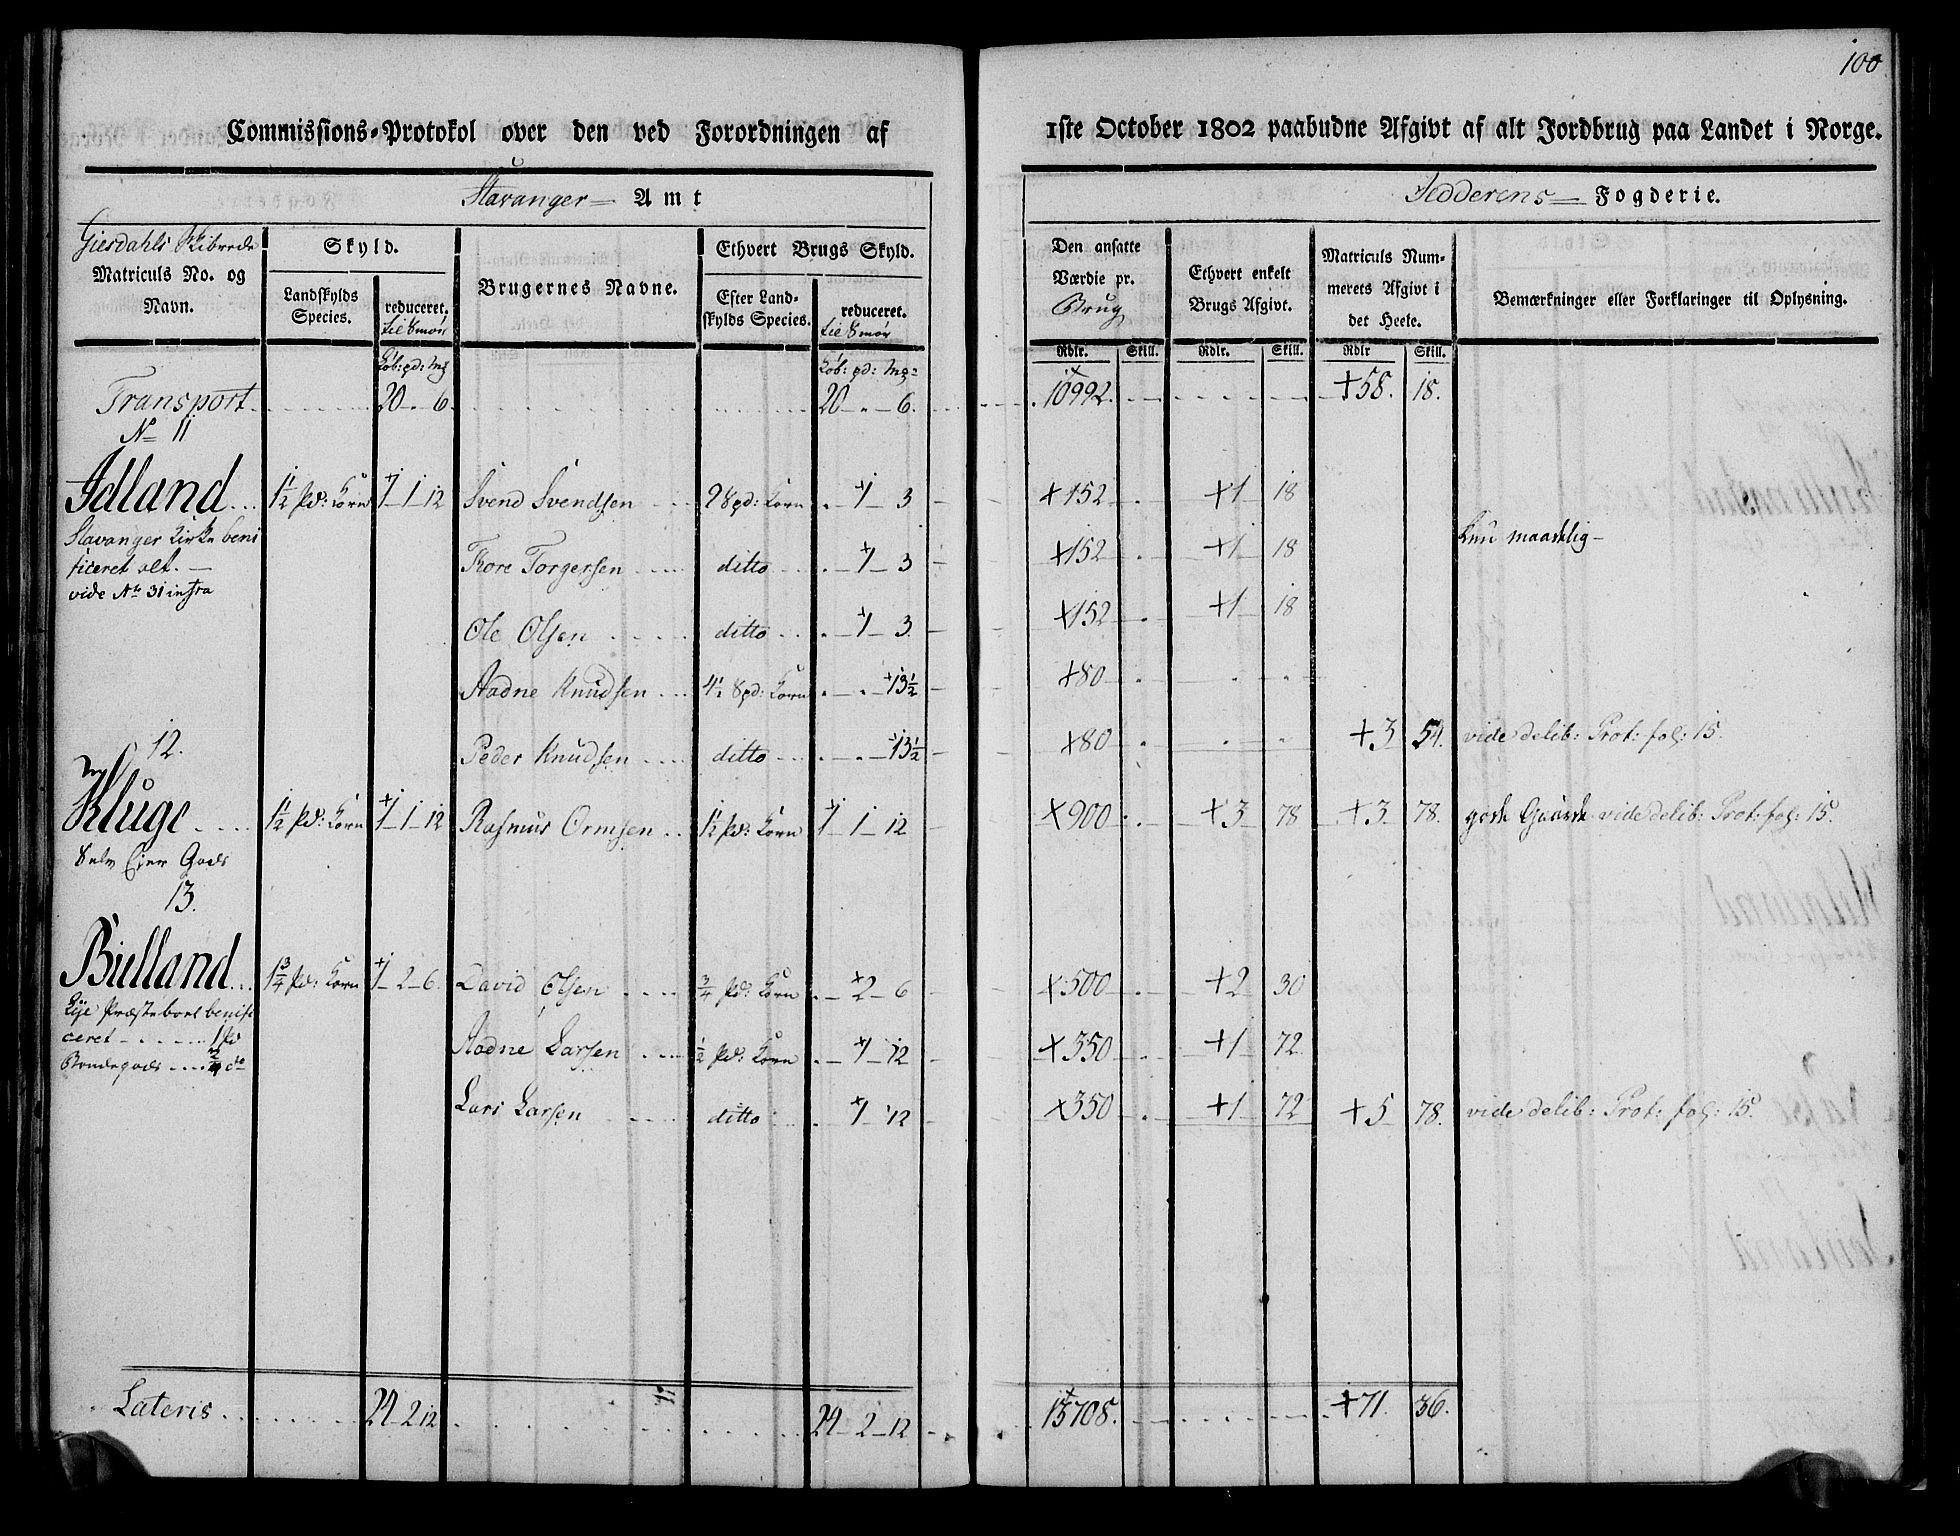 100
Commissions-Protokol over den ved Forordningen af 1ste October 1802 paabudne Afgivt af alt Jordbrug paa Landet i Norge.
Stavanger Amt
Jedderens Fogderie.
Giesdahls Skibrede
Matriculs No. og Navn.
Skyld.
Landskylds Species.
reduceret. til Smör
Brugernes Navne.
Ethvert Brugs Skyld.
Efter Landskylds Species.
reduceret. til Smör
Den ansatte Værdie pr. Brug
Ethvert enkelt Brugs Afgivt.
Matriculs Nummerets Afgivt i det Heele.
Bemærkninger eller Forklaringer til Oplysning.
Rdlr. Skill. Rdlr. Skill. Rdlr Skill.
Transport 20 - 6 20 - 6. 10992. +58. 18.
No 11
Idland 1½ pd: Korn 1-1-12 Svend Svendsen 9 8pd: Korn 1 3 +152 +1 18
Stavanger Kirke beni
ficeret alt.
vide No 31 infra
Tore Torgersen ditto 1 3 +152 +1 18
Ole Olsen ditto 1 3. +152 +1 18
Aadne Knudsen 4½ 8pd: Korn 13½ +80
Peder Knudsen ditto 13½ +80 +3 54. vide delib: Prot: fol: 15.
12.
Kluge 1½ pd: Korn 1-1-12 Rasmus Ormsen 1½ pd: Korn 1 1 12 +900 +3 78 +3 78. vide delib: Prot: fol: 15.
Selv Eier Gods
13.
Bielland 1¾ pd: Korn 1-2-6. David Olsen ¾ pd: Korn 2 6 +500 +2 30
Lÿe Præstebord benifi
ceret 1 pd
Bondegods
Aadne Larsen ½ pd: Korn 1 12 +350 +1 72
Lars Larsen ditto 1 12 +350 +1 72 +5 78. vide delib: Prot: fol: 15.
Lateris 24-2-12 24-2-12 13708. +71. 36.